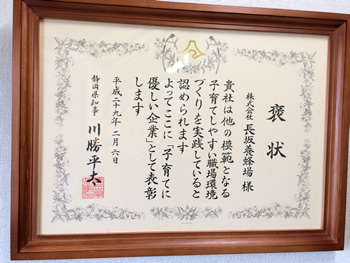 褒状
株式会社 長坂養蜂場 様
貴社は他の模範となる
子育てしやすい職場環境
づくりを実践していると
認められます
よってここに「子育てに
優しい企業」として表彰
します
平成二十九年二月六日
静岡県知事 川勝平太